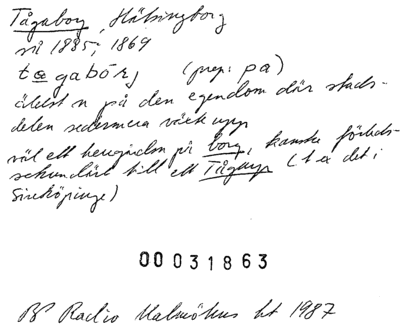 Tågaborg, Hälsingborg
nä 1885; 1869
tågabórj (prep: pa)
äldst n på den egendom där stads-
delen sedermera växt upp
väl ett herrgårdsn på borg, kanske förleds-
sekundärt till ett Tågarp (t ex det i
Sireköpinge)
00031863
BP Radio Malmöhus ht 1987